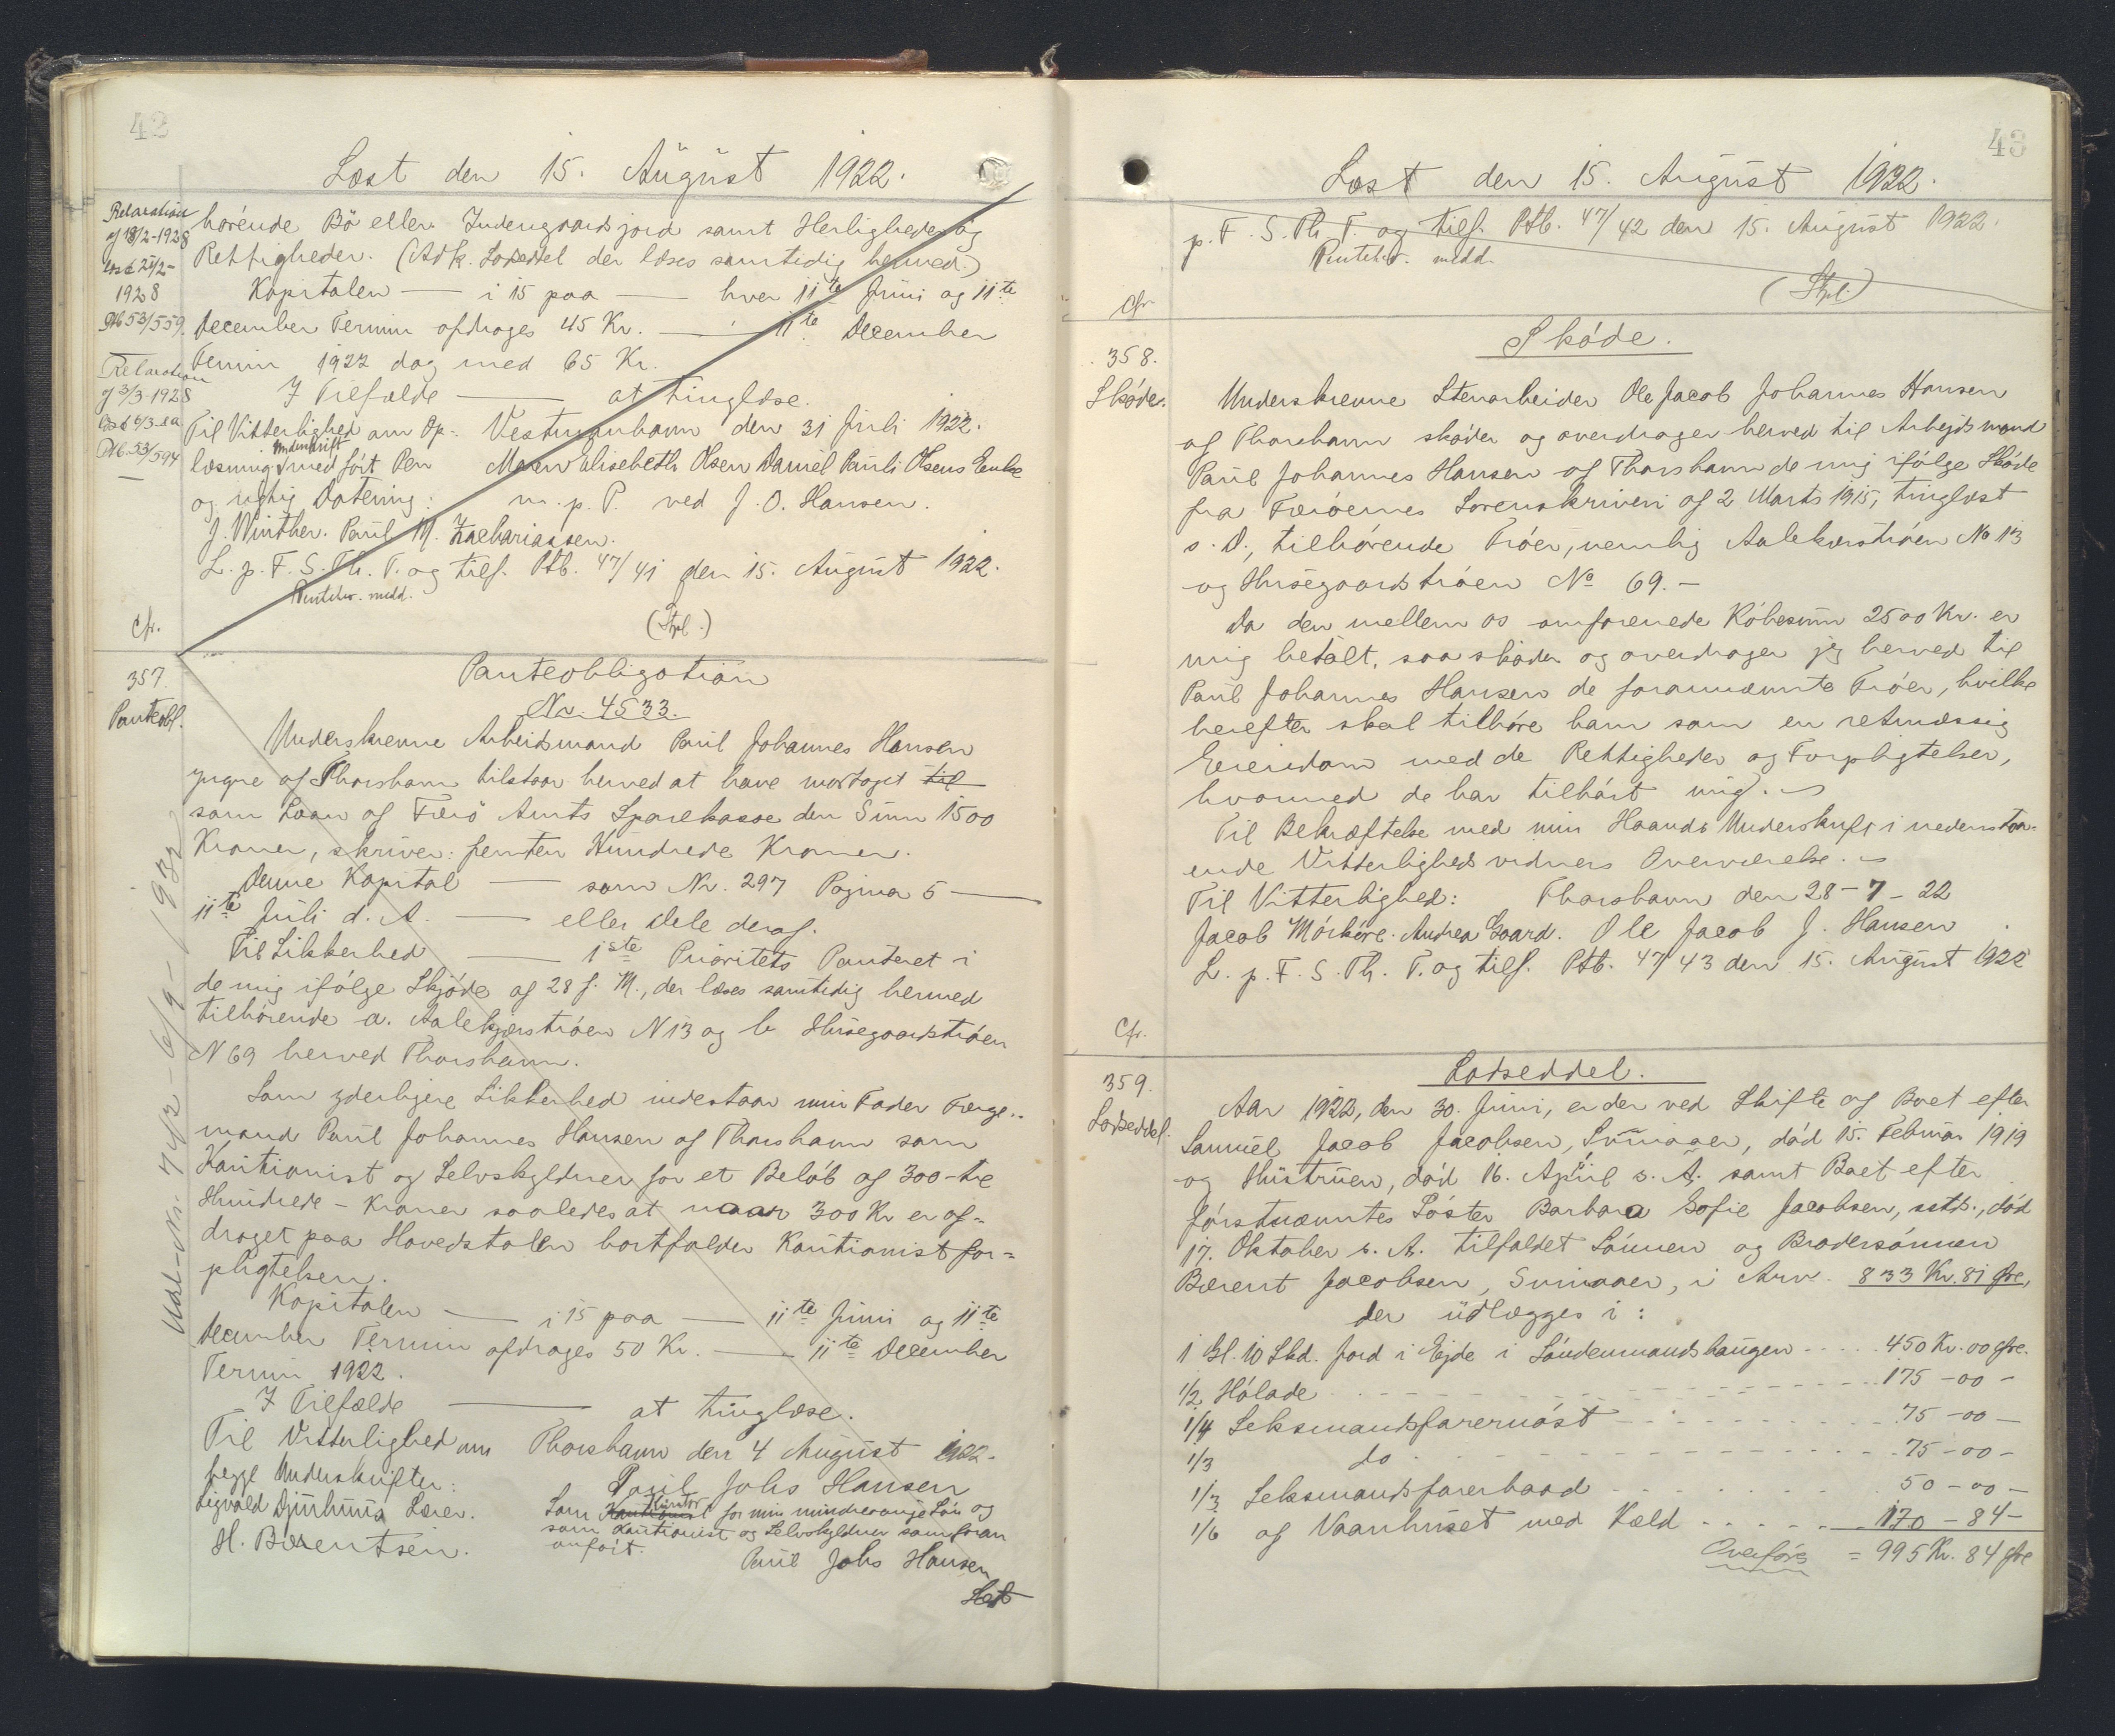 42
Læst den 15. August 1922.
Relaxation
af 18/2-1928
læst 25/2-
1928
Ptb 53/559.
hørende Bö eller Indengaardsjord samt Herligheder og
Rettigheder. (Adk. Lodseddel der læses samtidig hermed.)
Kapitalen — i 15 paa — hver 11te Juni og 11te
December Termin afdrages 45 Kr. — 11te December
Termin 1922 dog med 65 Kr.
Relaxation
af 3/3-1928
læst 6/3 s.a.
Ptb. 53/594
I Tilfælde — at tinglæse.
Til Vitterlighed om Op- Vestmanhavn den 31 Juli 1922.
læsning Underskrift med ført Pen Maren Elisebeth Olsen Daniel Pauli Olsens Enke
og rigtig Datering: m. p. P. ved J. O. Hansen.
J. Winther. Paul M. Zachariassen.
L. p. F. S. Th. T. og tilf. Ptb. 47/41 den 15. August 1922.
Rentebr. medd.
Cfr. (Stpl.)
357.
Panteobl.
Panteobligation
Nr. 4533.
Underskrevne Arbeidsmand Paul Johannes Hansen
yngre af Thorshavn tilstaar herved at have modtaget til
som Laan af Færö Amts Sparekasse den Sum 1500
Kroner, skriver: femten Hundrede Kroner.
Denne Kapital — som Nr. 297 Pagina 5 —
11te Juli d. A. — eller Dele deraf.
Til Sikkerhed — 1ste Prioritets Panteret i
de mig ifølge Skjøde af 28 f. M., der læses samtidig hermed
tilhørende a. Aalekjærstrøen N 13 og b Husegaardstrøen
N 69 herved Thorshavn.
Som yderligere Sikkerhed indestaar min Fader Færge-
mand Paul Johannes Hansen af Thorshavn som
Kautionist og Selvskyldner for et Beløb af 300 - tre
Hundrede - Kroner saaledes at naar 300 Kr er af-
draget paa Hovedstolen bortfalder Kautionistfor-
pligtelsen.
Kapitalen — i 15 paa — 11te Juni og 11te
December Termin afdrages 50 Kr. — 11te December
Termin 1922.
I Tilfælde — at tinglæse.
Til Vitterlighed om Thorshavn den 4 August 1922.
begge Underskrifter: Paul Johs Hansen
Sigvald Djurhuus Lærer. Som Kautionist Kurator for min mindreaarige Søn og
som Kautionist og Selvskyldner som foran
H. Bærentsen. anført.
Paul Johs Hansen
Læst
43
Læst den 15. August 1922.
p. F. S. Th. T. og tilf. Ptb. 47/42 den 15. August 1922.
Rentebr. medd.
(Stpl.)
Cfr
358.
Skøde.
Skøde.
Underskrevne Stenarbeider Ole Jacob Johannes Hansen
af Thorshavn skøder og overdrager herved til Arbejdsmand
Paul Johannes Hansen af Thorshavn de mig ifølge Skøde
fra Færöernes Sorenskriveri af 2 Marts 1915, tinglæst
s. D., tilhørende Trøer, nemlig Aalekærstrøen No 13
og Husegaardstrøen No 69.-
Da den mellem os omforenede Købesum 2500 Kr. er
mig betalt, saa skøder og overdrager jeg herved til
Paul Johannes Hansen de forannævnte Trøer, hvilke
herefter skal tilhøre ham som en retmæssig
Eiendom med de Rettigheder og Forpligtelser,
hvormed de har tilhørt mig.
Til Bekræftelse med min Haands Underskrift i nedenstaa-
ende Vitterlighedsvidners Overværelse.
Til Vitterlighed: Thorshavn den 28-7-22
Jacob Mörköre. Andrea Gaard. Ole Jacob J. Hansen
L. p. F. S. Th. T. og tilf. Ptb. 47/43 den 15. August 1922
Cfr.
359.
Lodseddel.
Lodseddel.
Aar 1922, den 30. Juni, er der ved Skifte af Boet efter
Samuel Jacob Jacobsen, Sumaaer, død 15. Februar 1919
og Hustruen, død 16. April s. A. samt Boet efter
førstnævntes Søster Barbara Sofie Jacobsen, sstds., død
17. Oktober s. A. tilfaldet Sønnen og Brodersønnen
Bærent Jacobsen, Sumaaer, i Arv 833 Kr. 81 Øre,
der udlægges i:
1 Gl. 10 Skd. Jord i Ejde i Søndenmandshaugen ..... 450 Kr. 00 Øre.
1/2 Hölade ..... 175 - 00 -
1/4 Seksmandsfarernöst ..... 75 - 00 -
1/3 do ..... 75 - 00 -
1/3 Seksmandsfarerbaad ..... 50 - 00 -
1/6 af Vaanhuset med Kæld ..... 170 - 84 -
Overføres = 995 Kr. 84 Øre